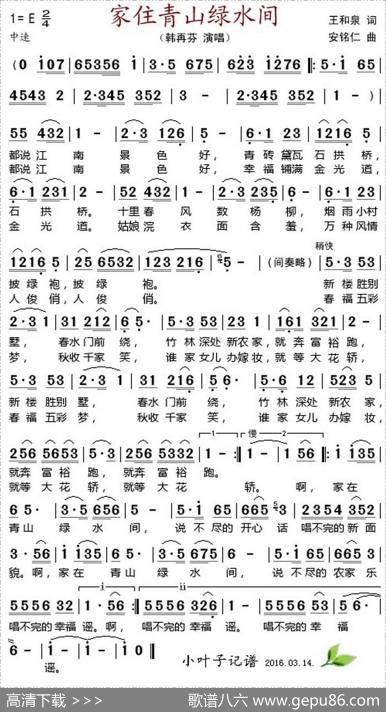 家住青山绿水间
1=E 2/4
王和泉 词
中速
(韩再芬 演唱)
安铭仁 曲
(0 i07 | 65356 i | 3·5 675 | 623 i276 |: 5·65 |
4543 2 | 2·345 352 | 2·345 352 | 1 - ) |
55 432 | 1 - | 2·3 126 | 5 - | 6·1 | 1216 5 |
都说江 南 景 色 好, 青 砖 黛瓦 石 拱 桥,
都说江 南 景 色 好, 幸 福 铺满 金 光 道,
6·1 231 | 2 - | 52 432 | 1 - | 2·3 235 | 6 - | 6·1 231 |
石 拱 桥。 十里春 风 数 杨 柳, 烟 雨 小村
金 光 道。 姑娘浣 衣 面 含 羞, 万 种 风情
稍快
1216 5 | 25 6532 | 123 216 | 5 - | (间奏略) | 5·3 23 |
披 绿 袍, 披 绿 袍。 新 楼 胜别
人 俊 俏, 人 俊 俏。 春 福 五彩
2·3 1 | 31 212 | 6· 5 | 3·5 13 | 2·1 23 | 161 331 | 2 - |
墅, 春水门前 绕, 竹 林 深处 新 农 家, 就 奔 富 裕 跑,
梦, 秋收千家 笑, 谁 家 女儿 办 嫁 妆, 就 等 大 花 轿,
5·3 53 | 53 2 | 56 565 | i· 6 | 5·6 53 | 5·0 23 |
新 楼 胜别 墅, 春水门前 绕, 竹 林 深处 新 农 家,
春 福 五彩 梦, 秋收千家 笑, 谁 家 女儿 办 嫁 妆,
256 5653 | 2 - | 256 5332 | 1 - :| 1·56 | i i35 |
就奔 富 裕 跑, 就奔 富 裕 跑。
就等 大 花 轿, 就等 大 花 轿。 啊, 家在
慢
65· | 3·5 6 | 5 - | 5 - | 5·i 65 | 665 3 | 2·3 35 |
青山 绿 水 间, 说 不 尽的 开心 话 唱不完的 新 面
3·56 | i i35 | 65· | 3·5 6 | 5 - | 5 - | 5·i 65 | 665 3 |
貌。啊, 家在 青 山 绿 水 间, 说 不 尽的 农家 乐
5556 32 | 1·56 :| 5556 32 | 1 - | 5555 6 | i - |
唱不完的 幸福 谣。啊, 唱不完的 幸福 谣。 唱不完的 幸 福
6 - | i - | i - | i - ||
谣。
小叶子记谱 2016.03.14.
高清下载 >>>
歌谱八六 www.gepu86.com